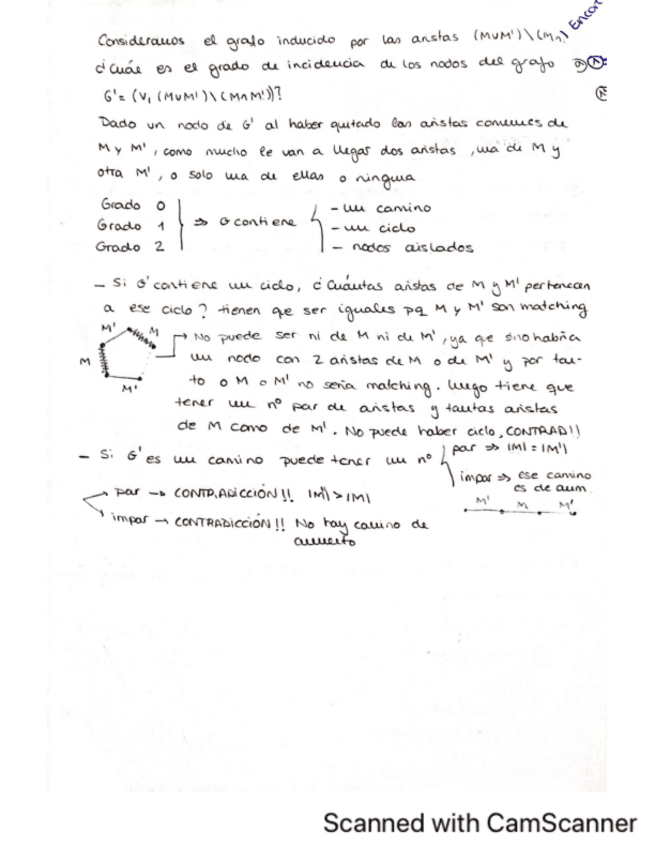 Encon
Consideramos el grafo inducido por las aristas (M∪M')\(M∩
¿Cuál es el grado de incidencia de los nodos del grafo
G' = (V, (M∪M')\(M∩M'))?
Dado un nodo de G' al haber quitado las aristas comunes de
M y M', como mucho le van a llegar dos aristas, una de M y
otra M', o solo una de ellas o ninguna
Grado 0
Grado 1 ⇒ G contiene
Grado 2
- un camino
- un ciclo
- nodos aislados
- Si G' contiene un ciclo, ¿Cuántas aristas de M y M' pertenecen
a ese ciclo? tienen que ser iguales pq M y M' son matching
M' M
M
M'
→ No puede ser ni de M ni de M', ya que sino habría
un nodo con 2 aristas de M o de M' y por tan-
to o M o M' no sería matching. Luego tiene que
tener un nº par de aristas y tantas aristas
de M como de M'. No puede haber ciclo, CONTRAD!!
- Si G' es un camino puede tener un nº
par ⇒ |M| = |M'|
impar ⇒ ese camino
es de aum.
M' M M'
par → CONTRADICCIÓN!! |M'| > |M|
impar → CONTRADICCIÓN!! No hay camino de
aumento
Scanned with CamScanner